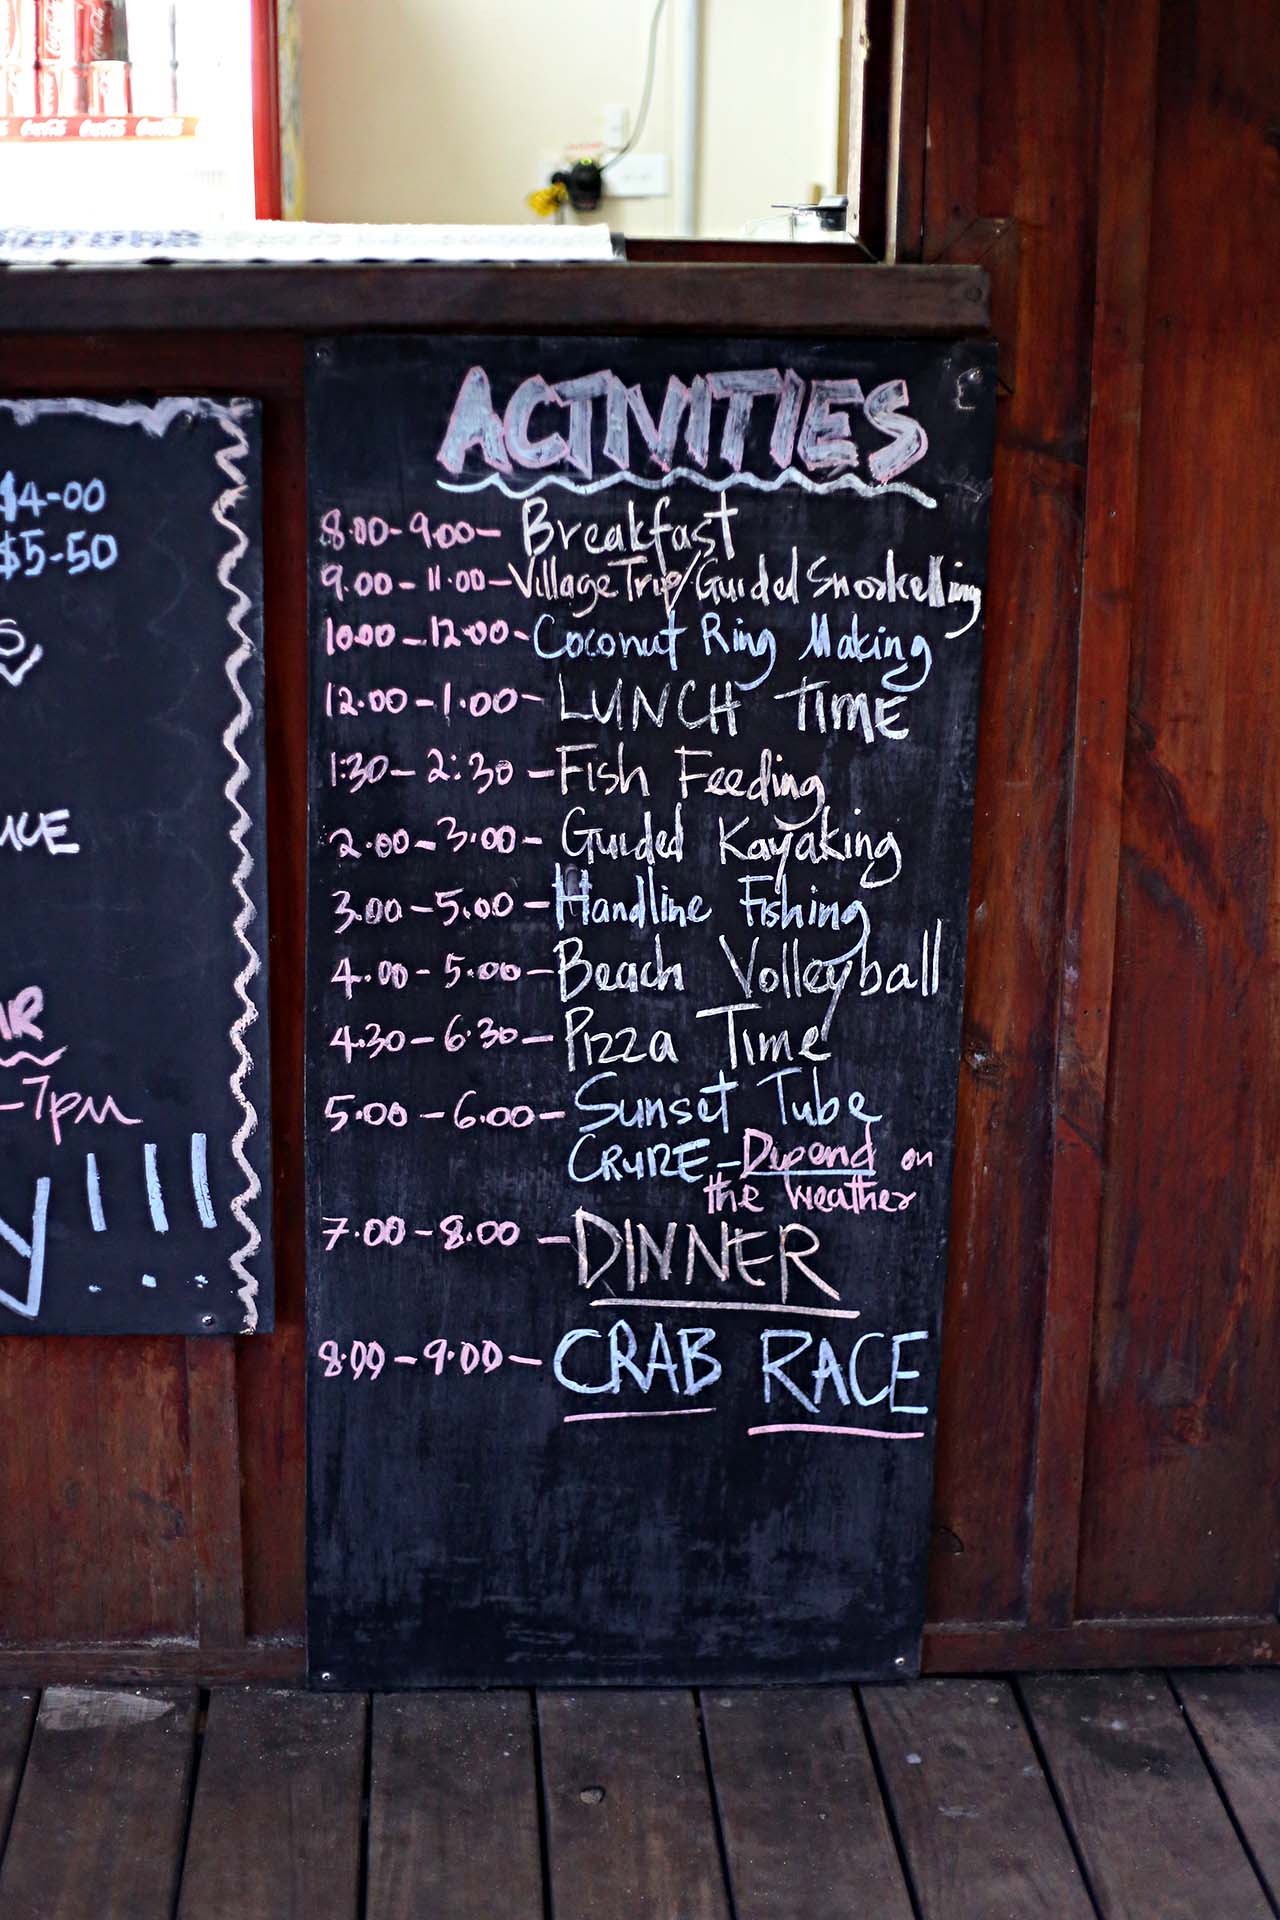 Coca-Cola Coca-Cola Coca-Cola
$4-00
$5-50
-7pm
!!!
ACTIVITIES
8.00-9.00- Breakfast
9.00-11.00-Village Trip/Guided Snorkelling
10.00-12.00-Coconut Ring Making
12.00-1.00- LUNCH TIME
1:30-2:30-Fish Feeding
2.00-3.00- Guided Kayaking
3.00-5.00-Handline Fishing
4.00-5.00-Beach Volleyball
4.30-6.30-Pizza Time
5.00-6.00-Sunset Tube
CRUIZE-Depend on
the weather
7.00-8.00-DINNER
8.00-9.00-CRAB RACE